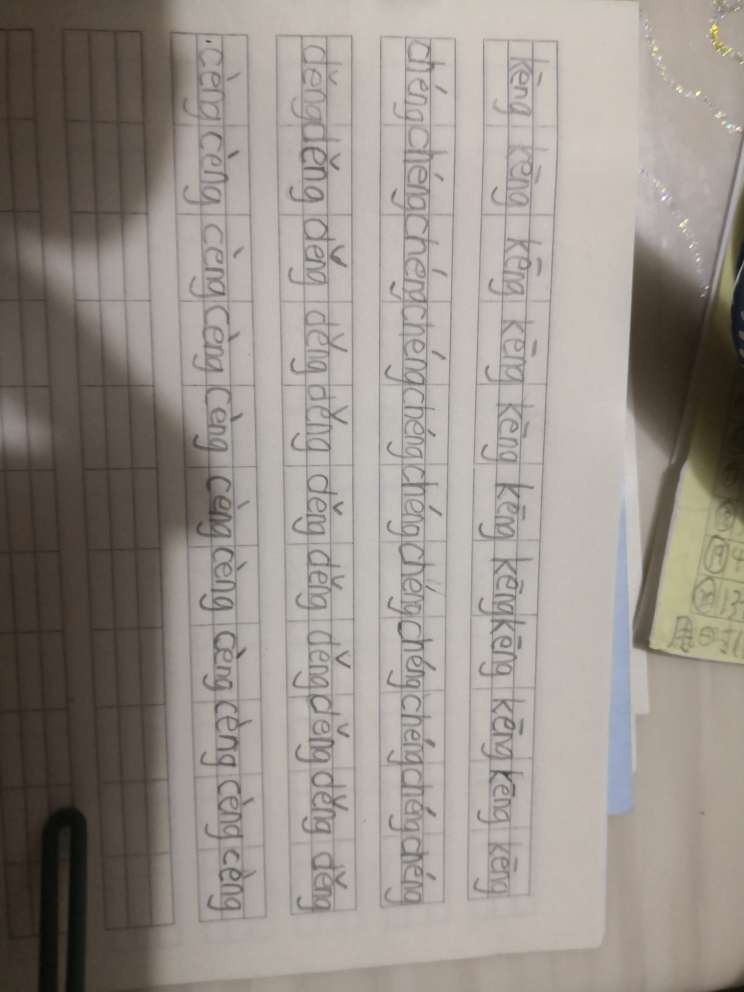 kēng kēng kēng kēng kēng kēng kēng kēng kēng kēng kēng
chéng chéng chéng chéng chéng chéng chéng chéng chéng chéng chéng
děng děng děng děng děng děng děng děng děng děng děng
cèng cèng cèng cèng cèng cèng cèng cèng cèng cèng cèng